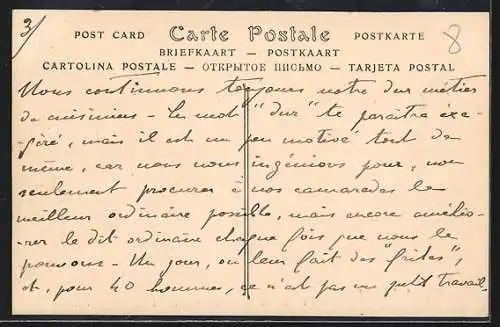 3/
8
POST CARD Carte Postale POSTKARTE
BRIEFKAART — POSTKAART
CARTOLINA POSTALE — ОТКРЫТОЕ ПИСЬМО — TARJETA POSTAL
Nous continuons toujours notre dur métier
de cuisiniers - Le mot "dur" te paraîtra exa-
géré, mais il est un peu motivé tout de
même, car nous nous ingénions pour, non
seulement procurer à nos camarades le
meilleur ordinaire possible, mais encore amélio-
rer le dit ordinaire chaque fois que nous le
pouvons - Un jour, on leur fait des "frites",
et, pour 40 hommes, ce n'est pas un petit travail.